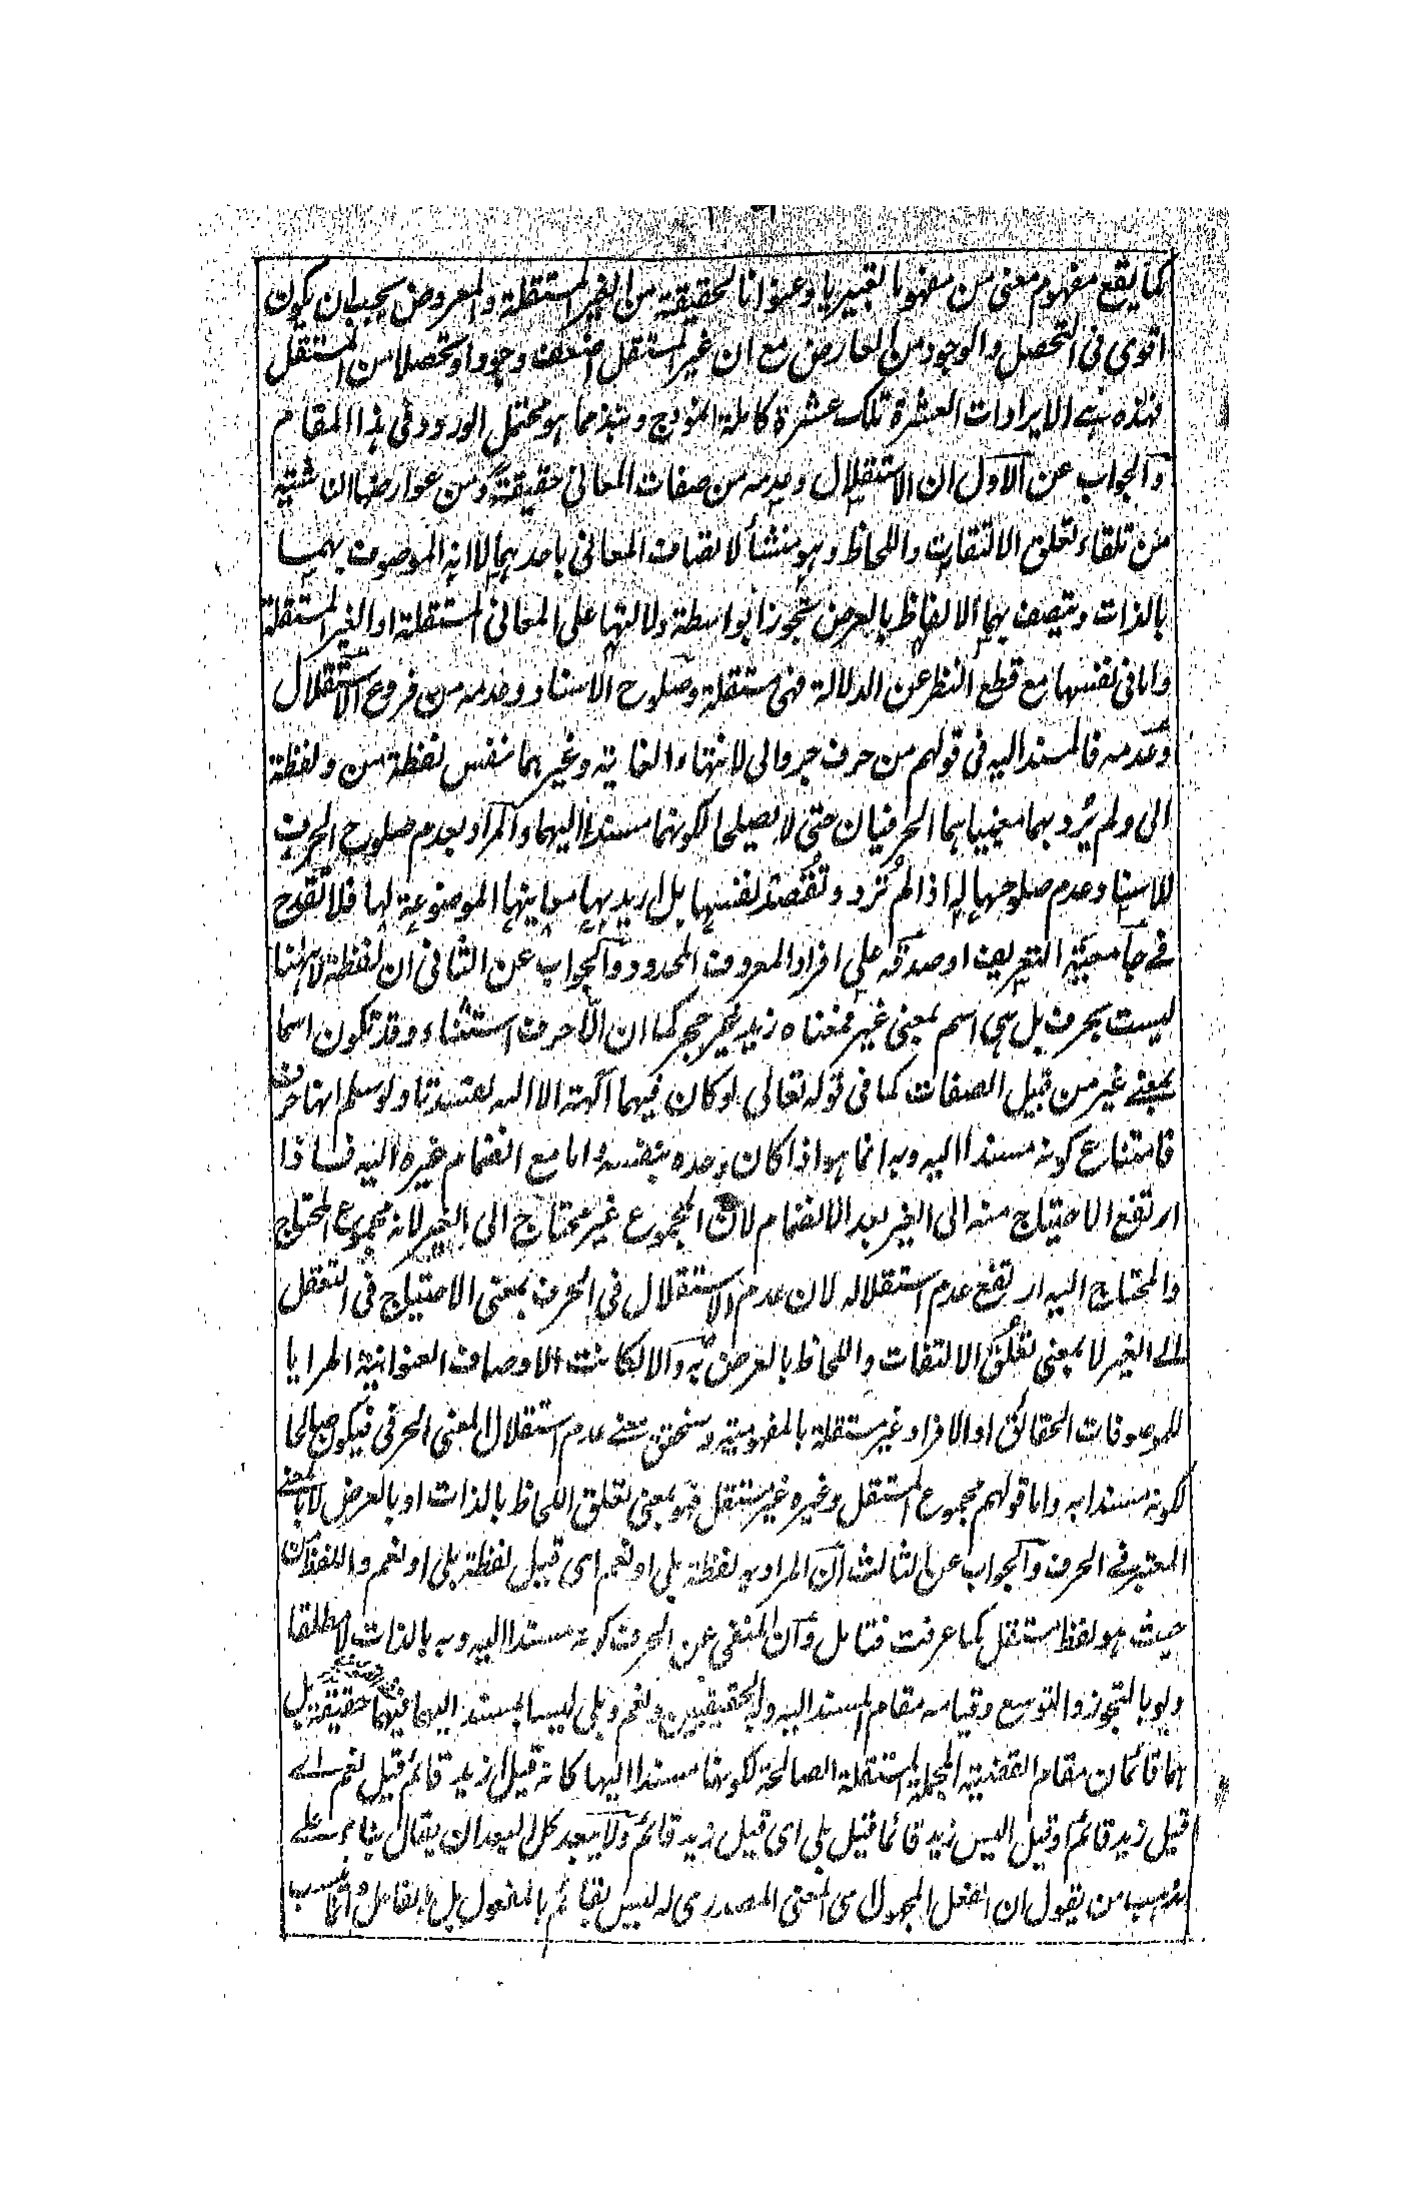 كما يقع مفهوم معنى من مفهوما تعبيريا وعنوانا لحقيقته من الغير المستقلة والمعروض يجب ان يكون
اقوى فى التحصل والوجود من العارض مع ان غير المستقل اضعف وجودا وتحصلا من المستقل
فهذه هى الايرادات العشرة تلك عشرة كاملة انموذج ونبذ مما هو محتمل الورود فى هذا المقام
والجواب عن الاول ان الاستقلال وعدمه من صفات المعانى حقيقة ومن عوارضها الناشئة
من تلقاء تعلق الالتفات واللحاظ وهو منشأ لاتصاف المعانى باحدهما لا انه الموصوف بهما
بالذات وتتصف بهما الالفاظ بالعرض تجوزا بواسطة دلالتها على المعانى المستقلة او الغير المستقلة
واما فى نفسها مع قطع النظر عن الدلالة فهى مستقلة وصلوح الاسناد وعدمه من فروع الاستقلال
وعدمه فالمسند اليه فى قولهم من حرف جر والى لانتهاء الغاية وغيرهما نفس لفظة من ولفظة
الى ولم يرد بهما معنياهما الحرفيان حتى لا يصلحا لكونهما مسندا اليهما والمراد بعدم صلوح الحرف
للاسناد عدم صلوحها له اذا لم ترد وتقصد نفسها بل اريد بها معاينها الموضوعة لها فلا تقدح
فى جامعية التعريف او صدقه على افراد المعروف المحدود والجواب عن الثانى ان لفظة لا ههنا
ليست بحرف بل هى اسم بمعنى غير فمعناه زيد غير حجر كما ان الا حرف استثناء وقد تكون اسما
بمعنى غير من قبيل الصفات كما فى قوله تعالى لو كان فيهما آلهة الا الله لفسدتا ولو سلم انها حرف
فامتناع كونه مسندا اليه وبه انما هو اذا كان وحده بنفسه واما مع انضمام غيره اليه فاذا
ارتفع الاحتياج منه الى الغير بعد الانضمام لان المجموع غير محتاج الى الغير لانه مجموع المحتاج
والمحتاج اليه ارتفع عدم استقلاله لان عدم الاستقلال فى الحرف بمعنى الاحتياج فى التعقل
الى الغير لا بمعنى تعلق الالتفات واللحاظ بالعرض به والا لكانت الاوصاف العنوانية المرايا
للموصوفات الحقائق او الافراد غير مستقلة بالمفهومية وستحقق معنى عدم استقلال المعنى الحرفى فيكون صالحا
لكونه مسندا به واما قولهم مجموع المستقل وغيره غير مستقل فهو بمعنى تعلق اللحاظ بالذات او بالعرض لا بالمعنى
المعتبر فى الحرف والجواب عن الثالث ان المراد به لفظة بلى او نعم اى قبيل لفظة بلى او نعم واللفظ من
حيث هو لفظ مستقل كما عرفت فتامل وان المنفى عن الحرف كونه مسندا اليه وبه بالذات لا مطلقا
ولو بالتجوز والتوسع وقيامه مقام المسند اليه وبه الحقيقيين ونعم وبلى ليسا بمسند اليهما فيهما حقيقة بل
هما قائمان مقام القضية المجملة المستقلة الصالحة لكونها مسندا اليها كانه قيل ازيد قائم قيل نعم اى
قيل زيد قائم او قيل اليس زيد قائما قيل بلى اى قيل زيد قائم ولا يبعد كل البعد ان يقال بناء على
مذهب من يقول ان الفعل المجهول اى المعنى المصدرى له ليس بقائم بالمفعول بل بالفاعل وانما نسب